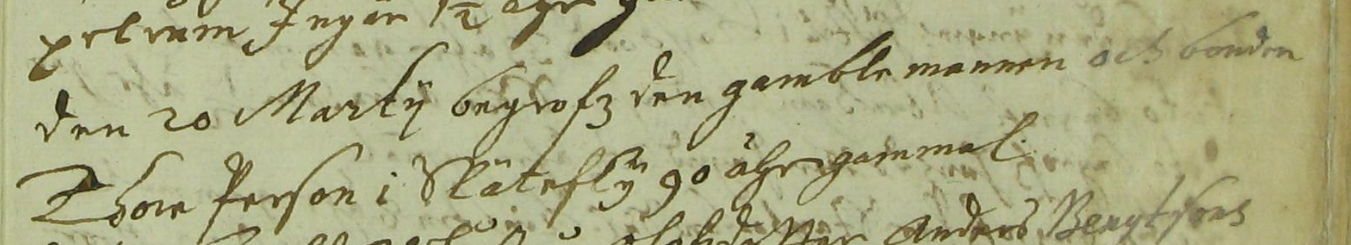 Ingär 1½ åhr
den 20 Martij begrofz den gamble mannen och bonden
Thore Person i Slätefly 90 åhr gammal.
Anders Bengtsons